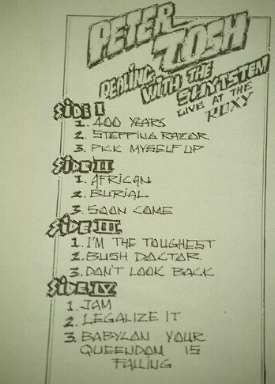 PETER
TOSH
DEALING
WITH THE
SHYTSTEM
LIVE AT THE
ROXY
SIDE I
1. 400 YEARS
2. STEPPING RAZOR
3. PICK MYSELF UP
SIDE II
1. AFRICAN
2. BURIAL
3. SOON COME
SIDE III
1. I'M THE TOUGHEST
2. BUSH DOCTOR
3. DON'T LOOK BACK
SIDE IV
1. JAM
2. LEGALIZE IT
3. BABYLON YOUR
QUEENDOM IS
FALLING